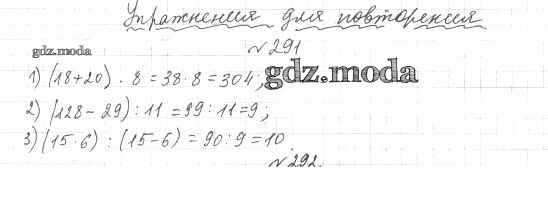 Упражнения для повторения
№291
gdz.moda
1) (18+20) · 8 = 38·8 = 304;
gdz.moda
2) (128-29) : 11 = 99 : 11 = 9;
3) (15·6) : (15-6) = 90 : 9 = 10.
№292.